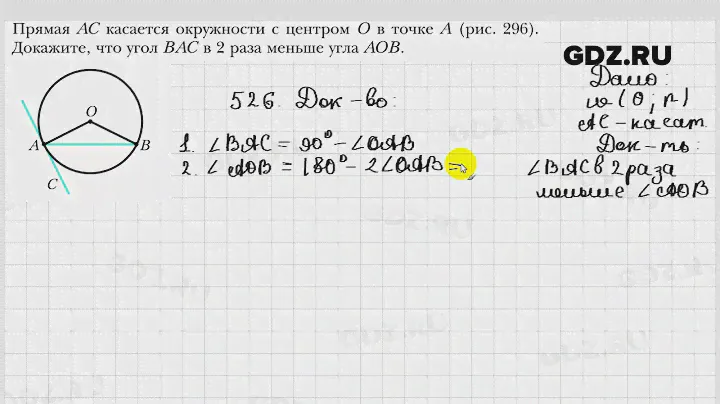 Прямая AC касается окружности с центром O в точке A (рис. 296).
Докажите, что угол BAC в 2 раза меньше угла AOB.
GDZ.RU
O
A
B
C
526. Док-во:
1. ∠BAC = 90° - ∠OAB
2. ∠AOB = 180° - 2∠OAB =
Дано:
ω(O; r)
AC - касат.
Док-ть:
∠BAC в 2 раза
меньше ∠AOB